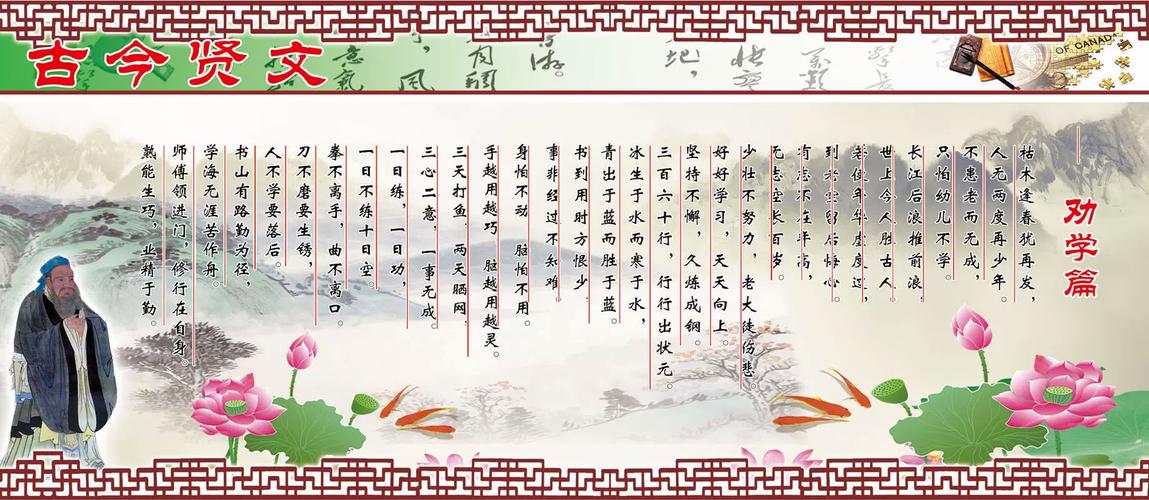 古今贤文
OF CANADA
劝学篇
枯木逢春犹再发，
人无两度再少年。
不患老而无成，
只怕幼儿不学。
长江后浪推前浪，
世上今人胜古人。
若使年华虚度过，
到老空留后悔心。
有志不在年高，
无志空长百岁。
少壮不努力，老大徒伤悲。
好好学习，天天向上。
坚持不懈，久炼成钢。
三百六十行，行行出状元。
冰生于水而寒于水，
青出于蓝而胜于蓝。
书到用时方恨少，
事非经过不知难。
身怕不动 脑怕不用。
手越用越巧 脑越用越灵。
三天打鱼，两天晒网，
三心二意，一事无成。
一日练，一日功，
一日不练十日空。
拳不离手，曲不离口。
刀不磨要生锈，
人不学要落后。
书山有路勤为径，
学海无涯苦作舟。
师傅领进门，修行在自身。
熟能生巧，业精于勤。